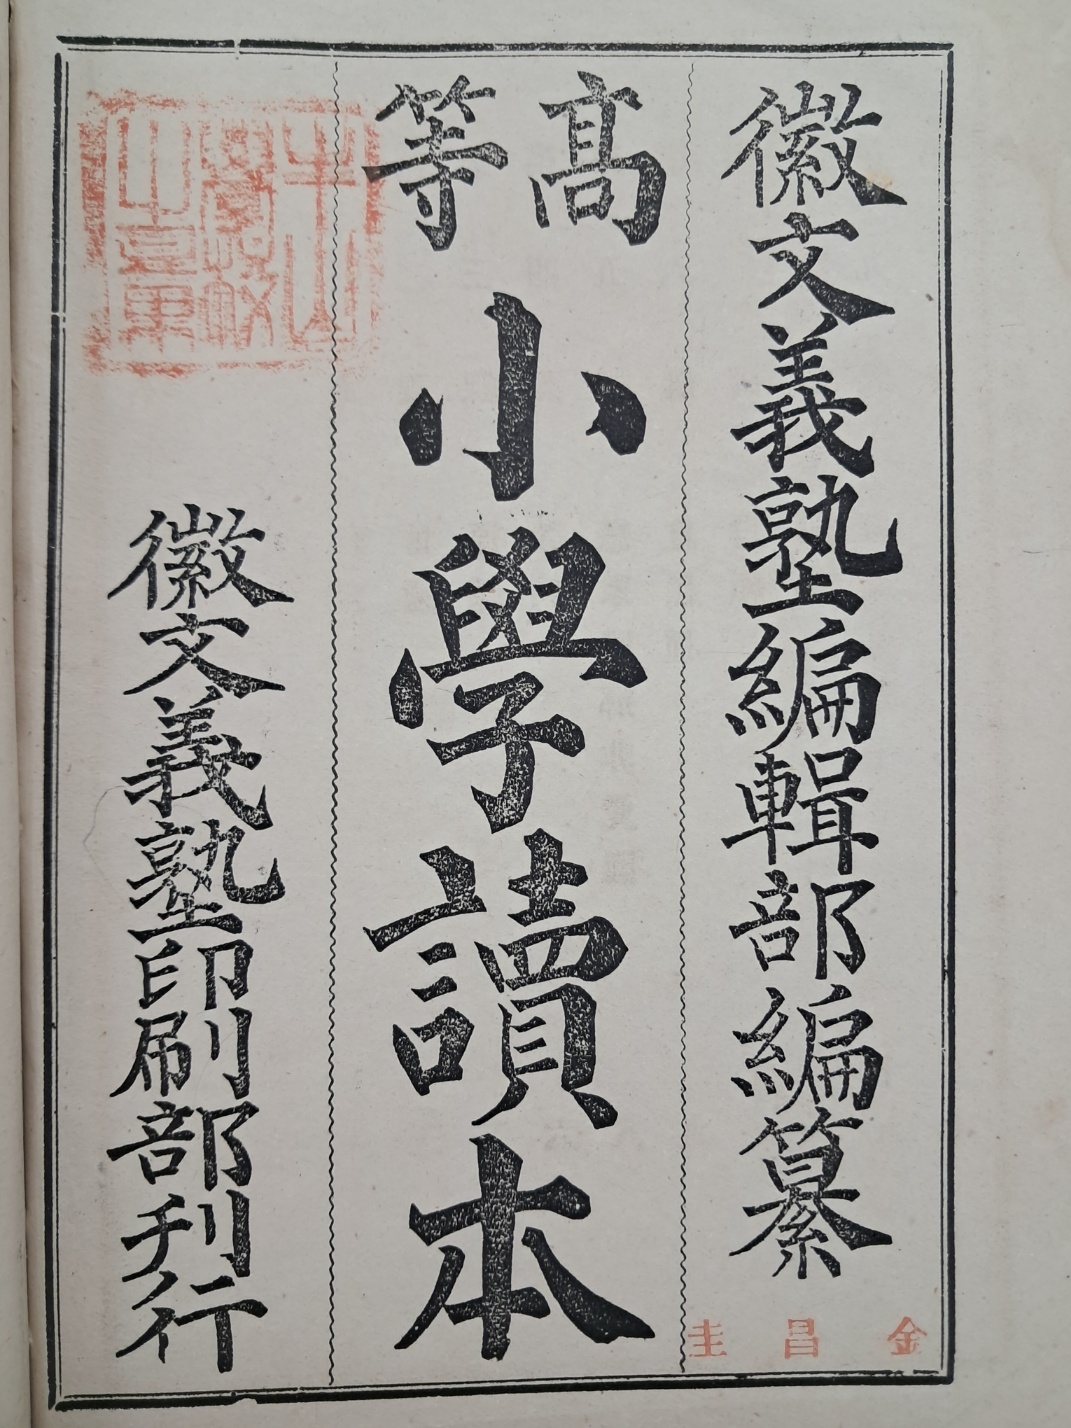 徽文義塾編輯部編纂
高等
小學讀本
徽文義塾印刷部刊行
牛山
學校
金昌圭